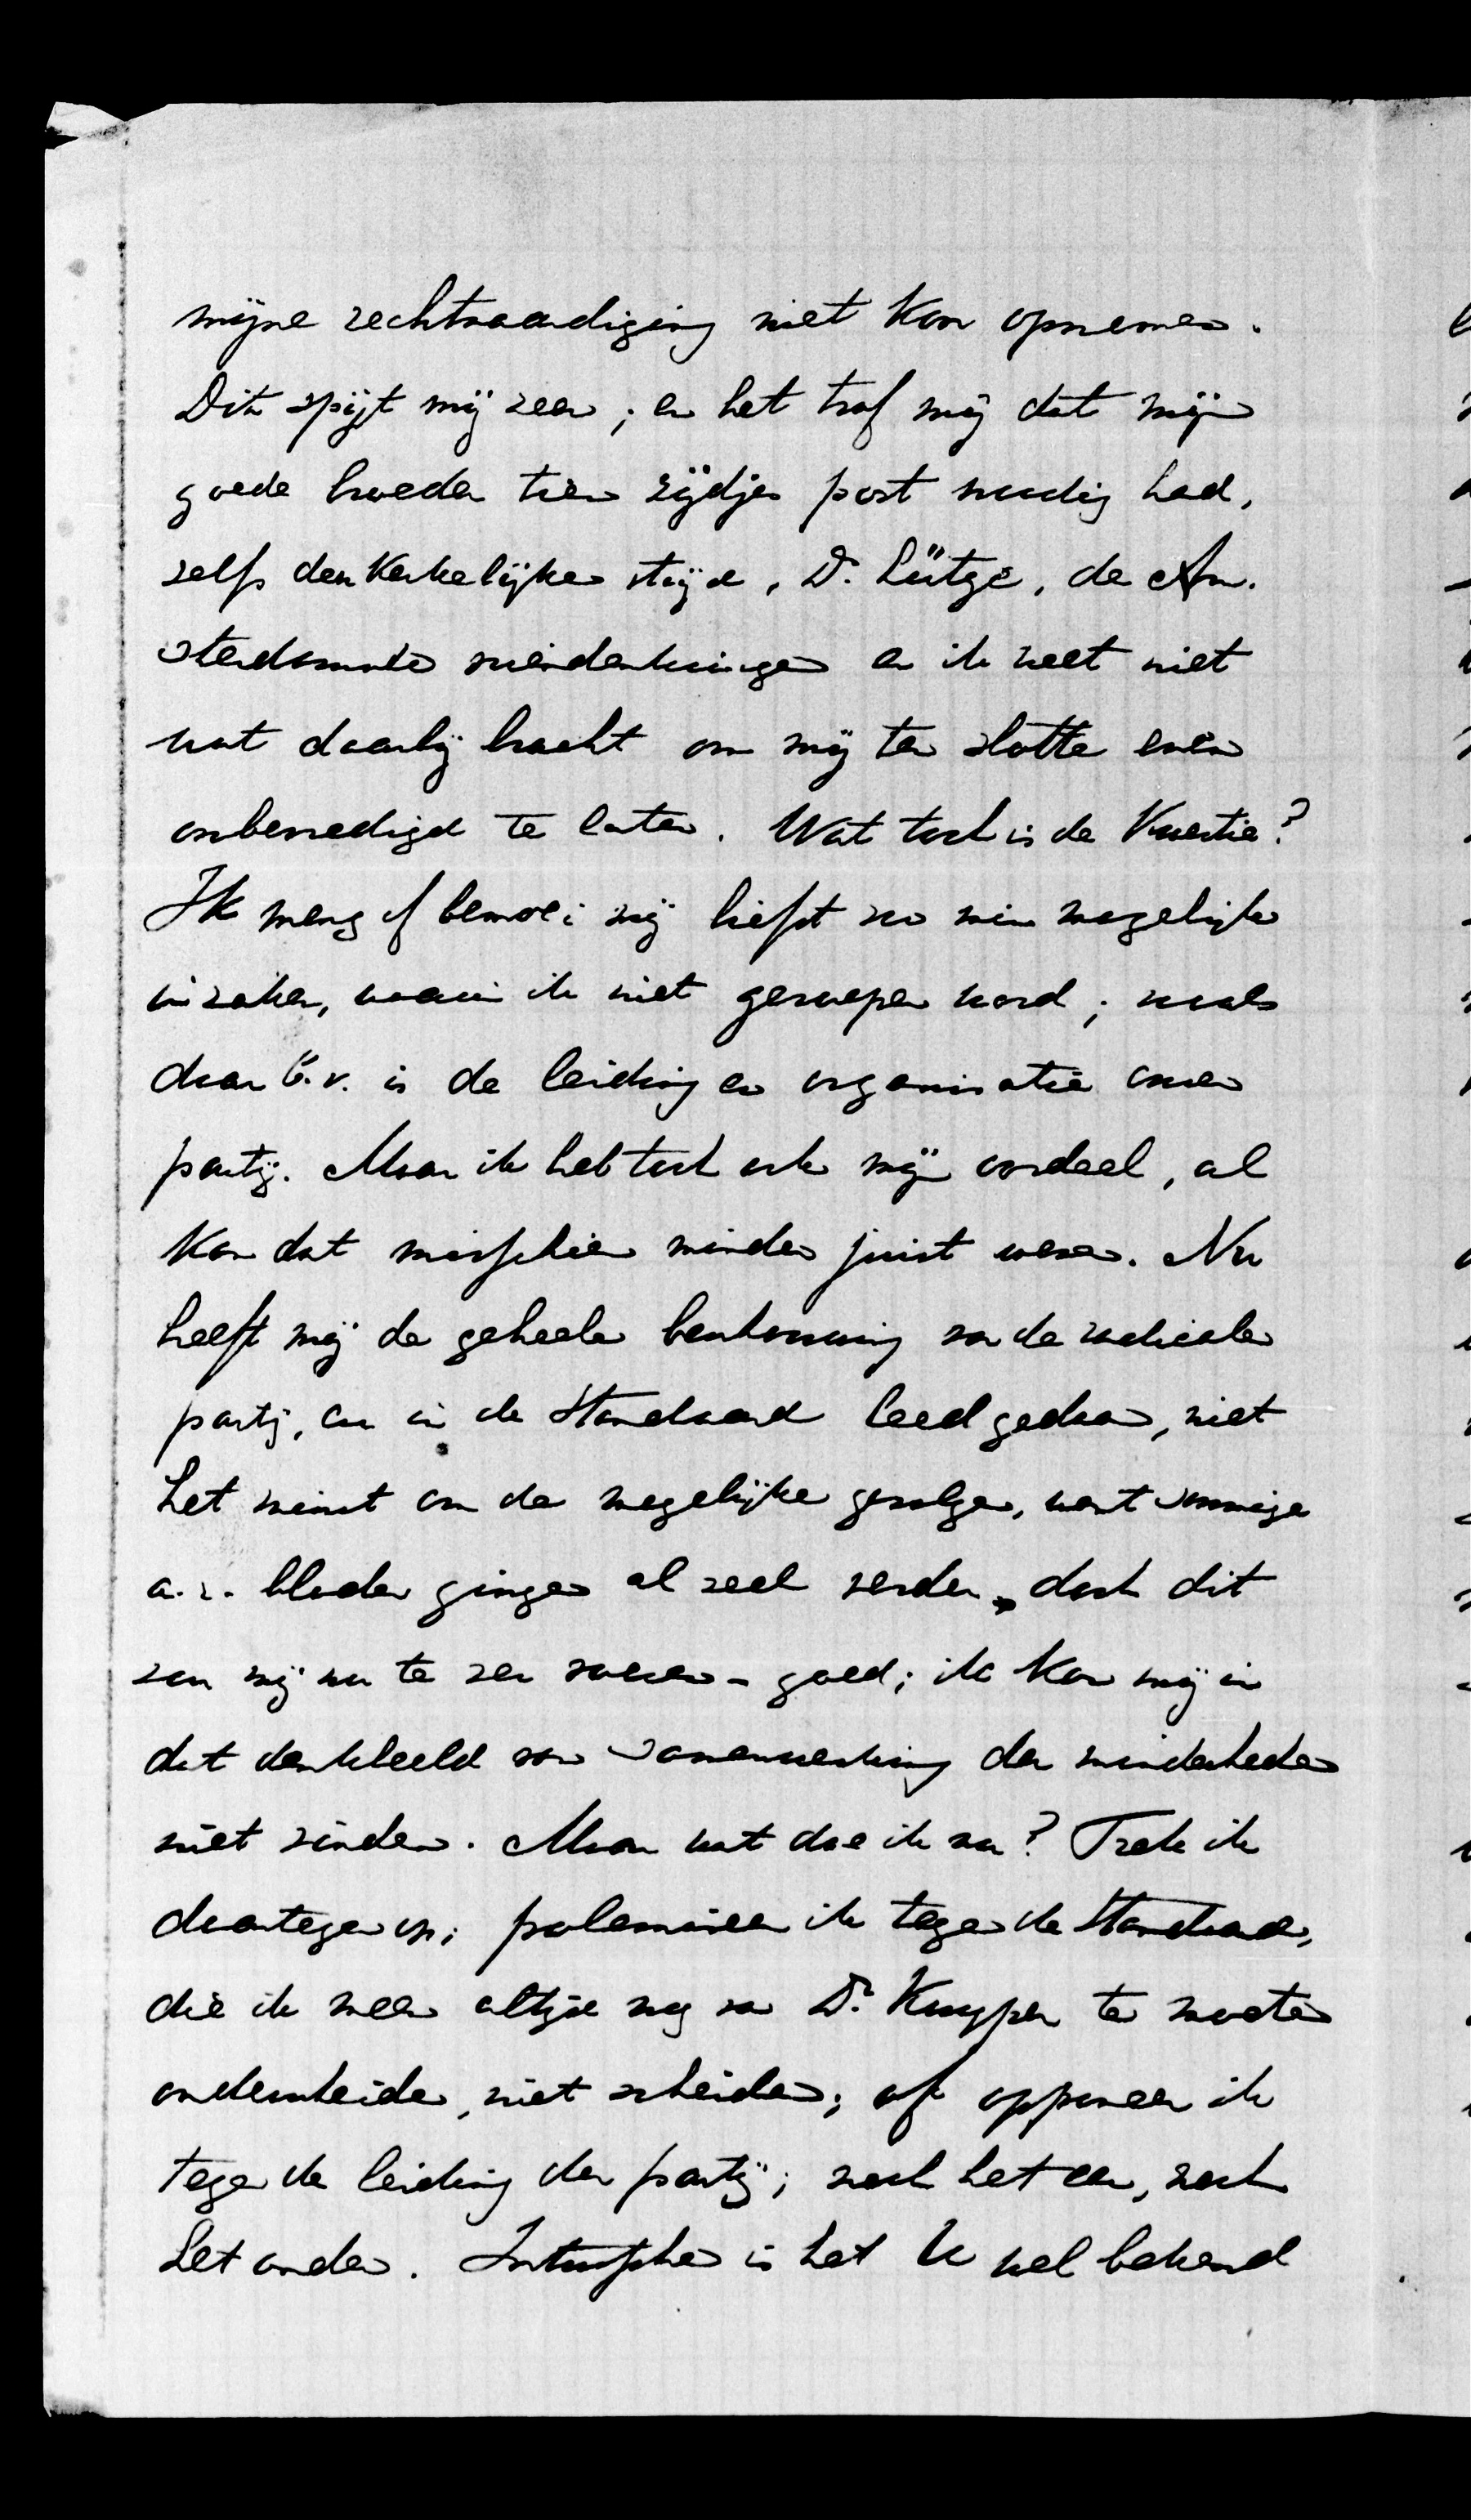 mijne rechtvaardiging niet kon opnemen.
Dit spijt mij zeer; en het trof mij dat mijn
goede broeder tien zijdjes post noodig had,
zelfs den Kerkelijken strijd, Dr. Lütge, de Am-
sterdamsche vriendenkringen en ik weet niet
wat daarbij bracht om mij ten slotte even
onbevredigd te laten. Wat toch is de Kwestie?
Ik meng of bemoei mij liefst zoo min mogelijk
in zaken, waarin ik niet geroepen word; zooals
daar b.v. is de leiding en organisatie onzer
partij. Maar ik heb toch ook mijn oordeel, al
kan dat misschien minder juist wezen. Nu
heeft mij de geheele beschouwing van de radicale
partij, enz in de Standaard leed gedaan, niet
het minst om de mogelijke gevolgen, want sommige
a.r. bladen gingen al veel verder, doch dit
zou mij nu te ver voeren – goed; ik kon mij in
dat denkbeeld van samenwerking der minderheden
niet vinden. Maar wat doe ik nu? Trek ik
daartegen op; polemiseer ik tegen de Standaard,
die ik meen altijd nog van Dr. Kuyper te moeten
onderscheiden, niet scheiden; of opponeer ik
tegen de leiding der partij; noch het een, noch
het ander. Intusschen is het U wel bekend